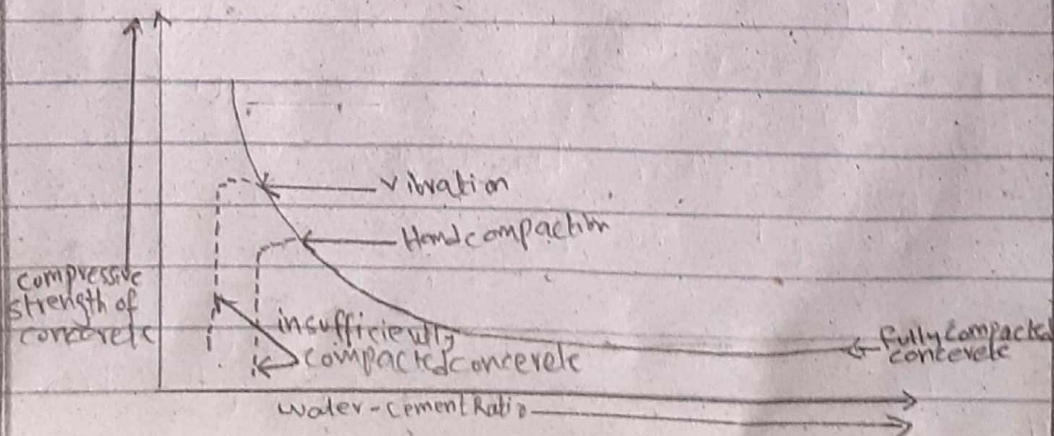 Vibration
Hand compaction
compressive
strength of
concrete
insufficiently
compacted concerete
fully compacted
concerete
Water-cement Ratio